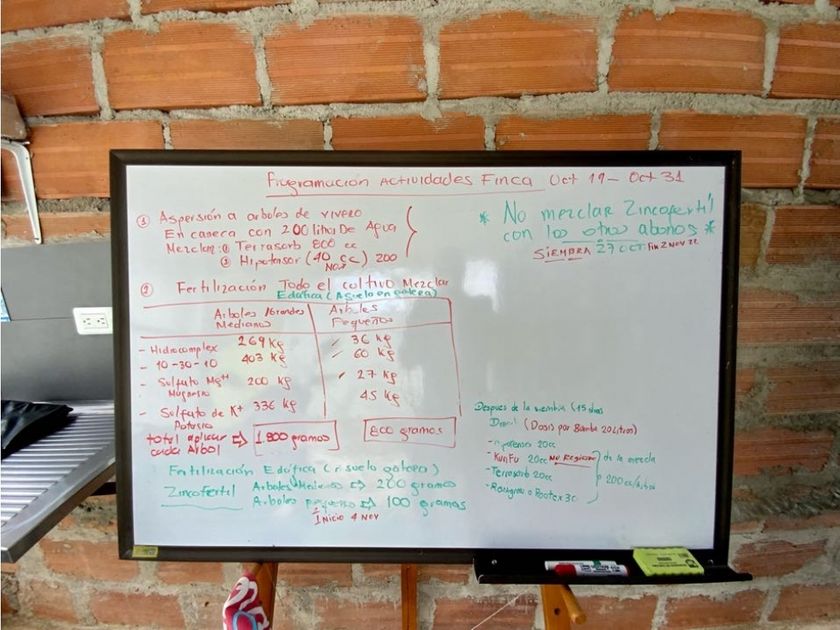 Programación Actividades Finca Oct 19 - Oct 31
① Aspersión a arboles de vivero
En caneca con 200 litros De Agua
Mezclar: ① Terrasorb 800 cc
② Hipotensor (40 cc) 200
② Fertilización Todo el cultivo Mezclar
Edáfica (A suelo en gotera)
Arboles /Grandes
Medianos
Arboles
Pequeños
- Hidrocomplex 269 Kg 36 Kg
- 10-30-10 403 Kg 60 Kg
- Sulfato Mg++ 200 Kg 27 Kg
Magnesio
- Sulfato de K+ 336 Kg 45 Kg
Potasio
total aplicar ⇨ 1.800 gramos 800 gramos
cada Arbol
Fertilización Edáfica ( suelo gotera)
Zincofertil Arboles Medianos ⇨ 200 gramos
Arboles pequeños ⇨ 100 gramos
Inicio 4 Nov
* No mezclar Zincofertil
con los otros abonos *
SIEMBRA 27 OCT Fin 2 NOV 22
Despues de la siembra (15 dias
(Dosis por Bomba 20 Litros)
20cc
- KunFu 20cc No
- Terrasorb 20cc
o Rootex 30
de la mezcla
200 cc/Arbol